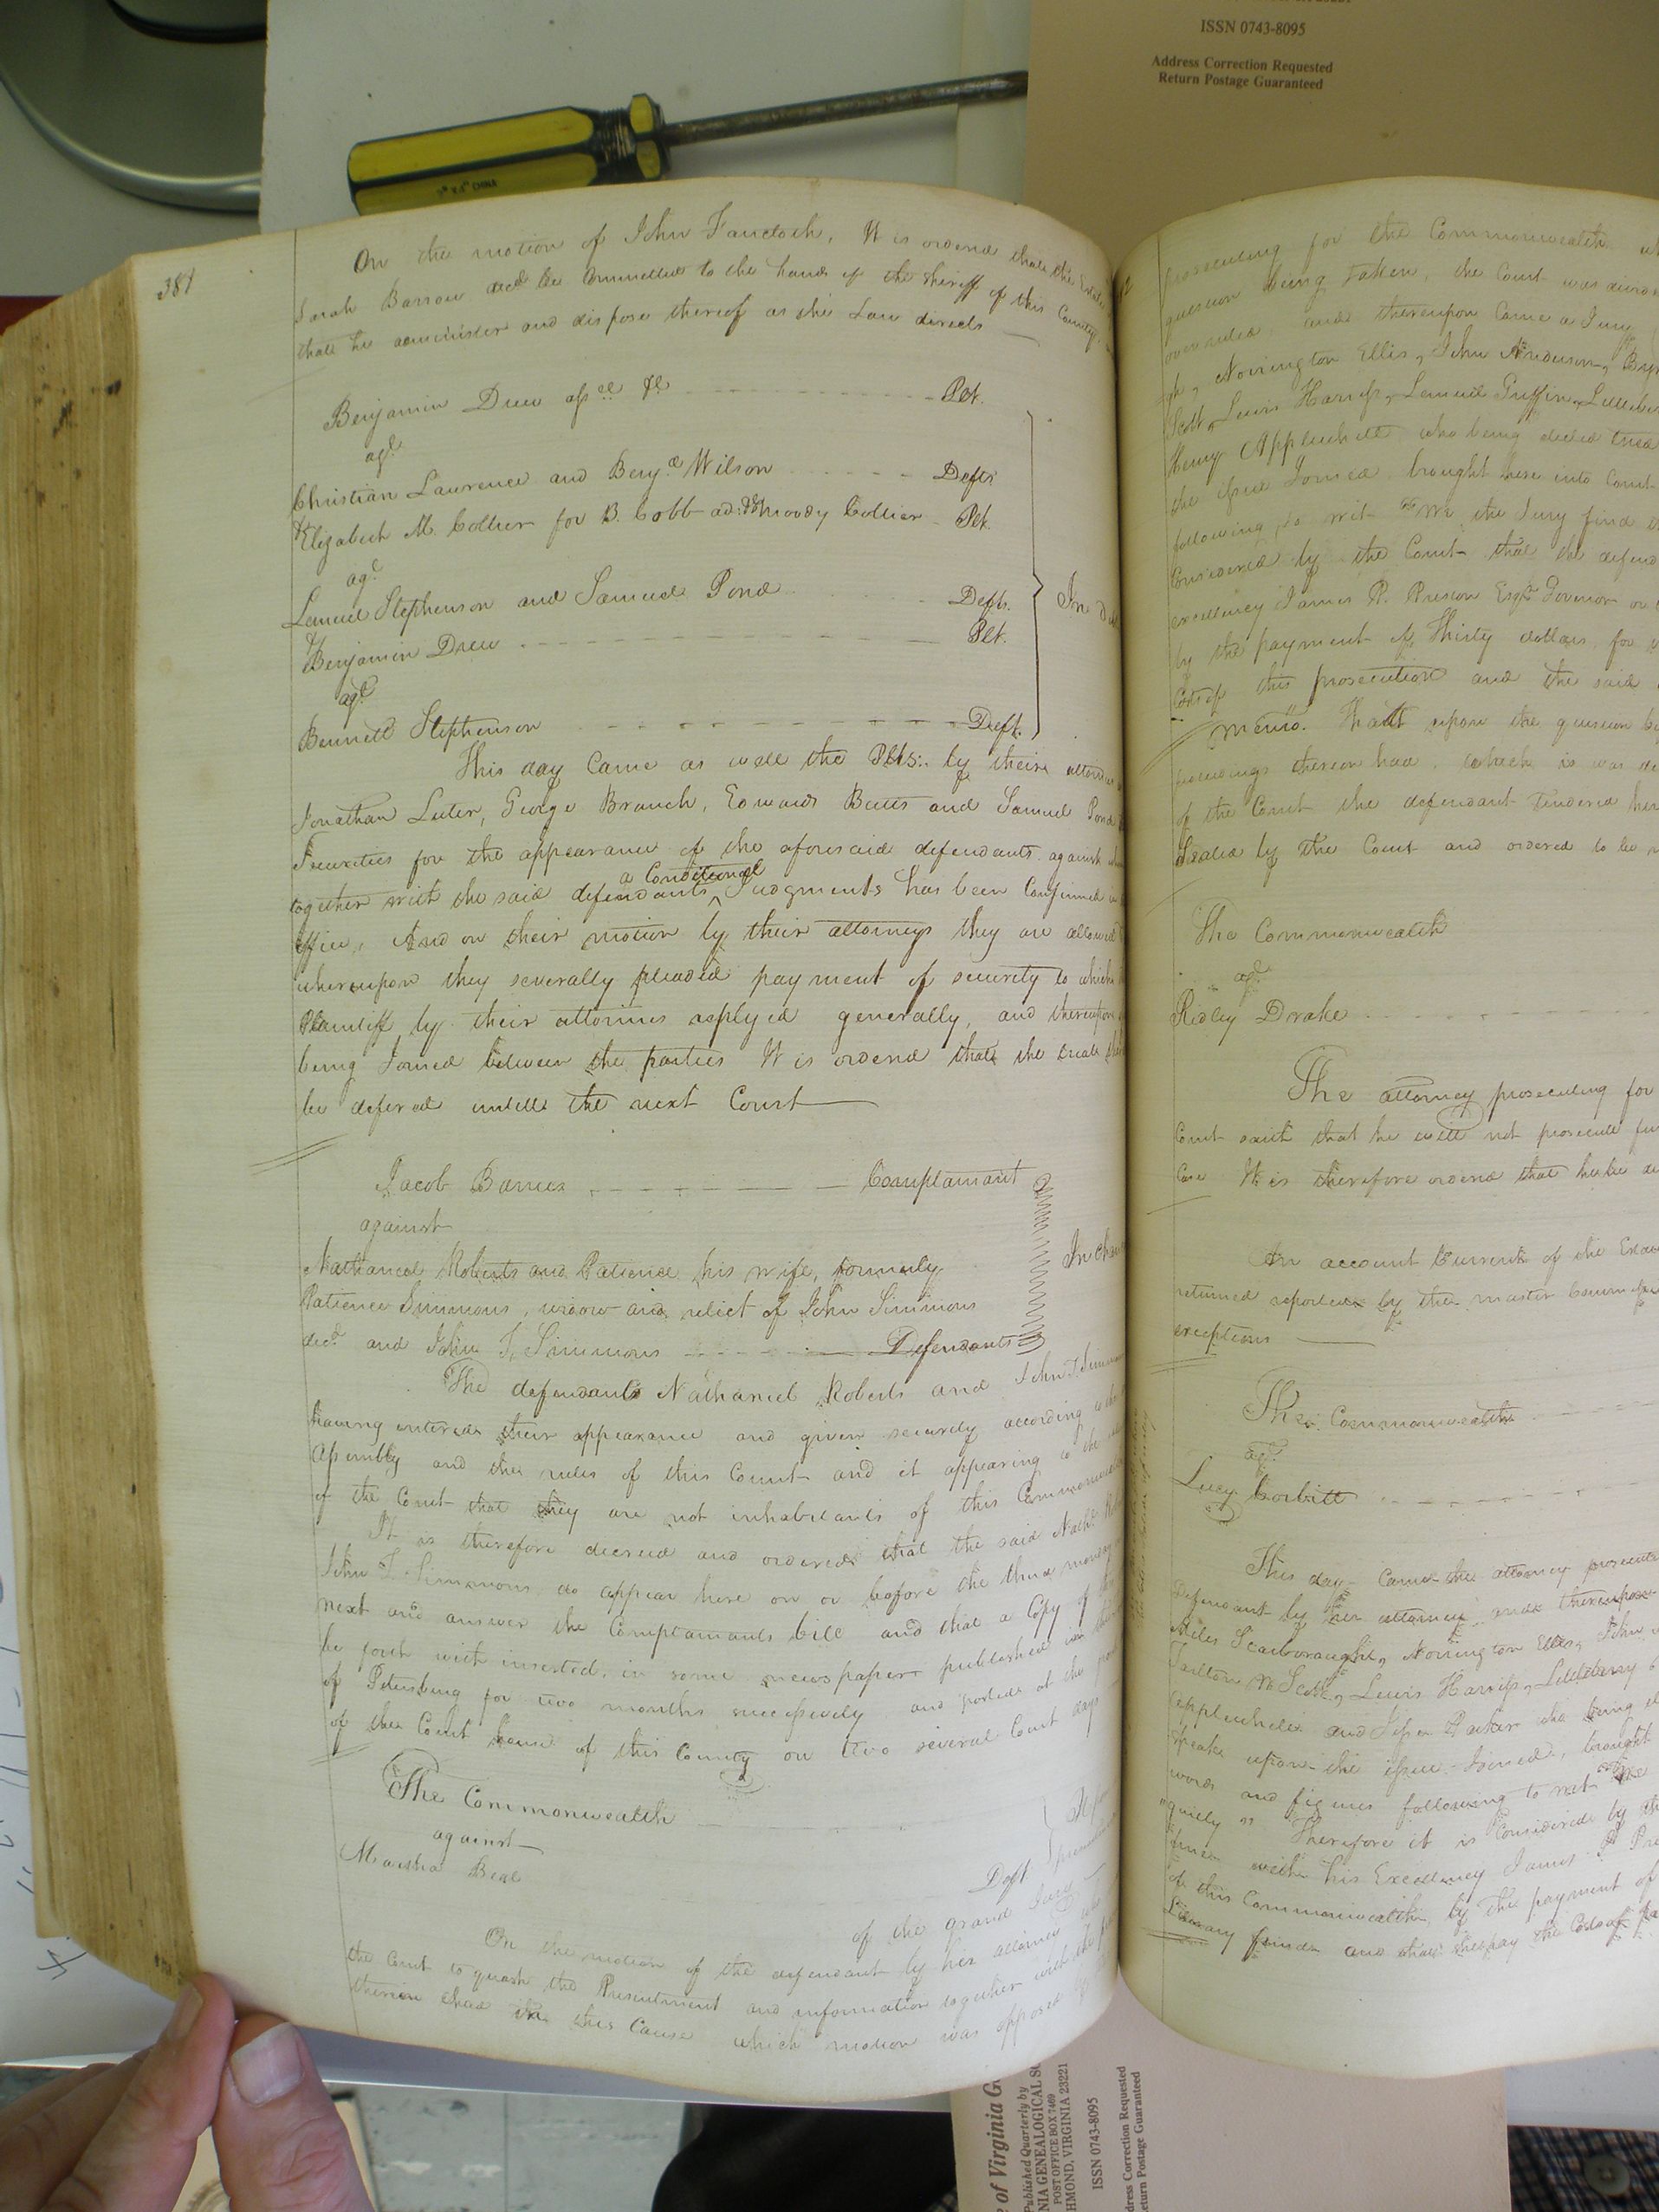 ISSN 0743-8095
Address Correction Requested
Return Postage Guaranteed
CHINA
381
On the motion of John It is ordered that the Estate
Sarah Barrow decd be committed to the hands of the Sheriff of this County,
that he administer and dispose thereof as the Law directs
Benjamin Drew assee &c Plt.
agt
Christian Lawrence and Benja Wilson Defts
Elizabeth M. Collier for B. Cobb Moody Collier Plt.
agt
Lemuel Stephenson and Samuel Pond Defts. In
Benjamin Drew Plt.
agt
Bennett Stephenson Deft.
This day Came as well the Plts: by theire
Jonathan Luter, George Branch, Edwards Butts and Samuel Pond
Securities for the appearance of the aforesaid defendants against
together with the said defendants a Conditional Judgments has been Confirmed in
office, And on their motion by their attorneys they are allowed
whereupon they severally pleaded payment of security to which
Plaintiff by their attornies replyed generally, and thereupon
being Joined between the parties It is orderd that the trials
be deferred untill the next Court
Jacob Barnes Complamant
against
Nathaniel Roberts and Patience his wife, formerly In
Patience Simmons, widow and relict of John Simmons
decd and John T. Simmons Defendants
The defendants Nathaniel Roberts and John T. Simmons
having entered their appearance and given security according
Assembly and the rules of this Court and it appearing to the
of the Court that they are not inhabitants of this Commonwealth
It is therefore decreed and ordered that the said Nathl
John T. Simmons do appear here on or before the third monday
next and answer the Complamants bill and that a Copy of
be forth with inserted, in some newspaper published in
of Petersburg for two months successively and posted at the
of the Court house of this County on two several Court days
The Commonwealth
against
Martha Beal Deft
of the grand Jury
On the motion of the defendant by his attorney
the Court to quash the Presentment and information together with the
therein had in this Cause which motion was opposed
prosecuting for the Commonwealth
question being taken, the Court was
overruled and thereupon Came a Jury
Norrington Ellis, John Anderson,
Scott, Lewis Harriss, Lemuel Griffin,
Henry Applewhite who being elected tried
the issue Joined brought here into Court
following to wit "We the Jury find
Considered by the Court that the
excellency James P. Preston Esqr Govenor
by the payment of Thirty dollars for
Costs of this prosecution and the said
memo. That upon the question
proceedings thereon had, which
of the Court the defendant tendered
Sealed by the Court and ordered to be
The Commonwealth
agt
Ridley Drake
The attorney prosecuting for
Court saith that he will not prosecute
Case It is therefore orderd that he be
An account Current of the
returned reported by the master
exceptions
The Commonwealth
agt
Lucy Corbitt
This day Came the attorney
Defendant by her attorney and thereupon
Miles Scarborough, Norrington Ellis, John
Tarlton W Scott, Lewis Harriss,
Applewhite and Parker who being
speake upon the issue Joined, brought
words and figures following to wit "We
guilty" Therefore it is Considered by the
fined with his Excellency James P
of this Commonwealth by the payment of
Literary fund and that she pay the Costs of
of Virginia
Published Quarterly by
NIA GENEALOGICAL
POST OFFICE BOX 7469
HMOND, VIRGINIA 23221
ISSN 0743-8095
dress Correction Requested
eturn Postage Guaranteed